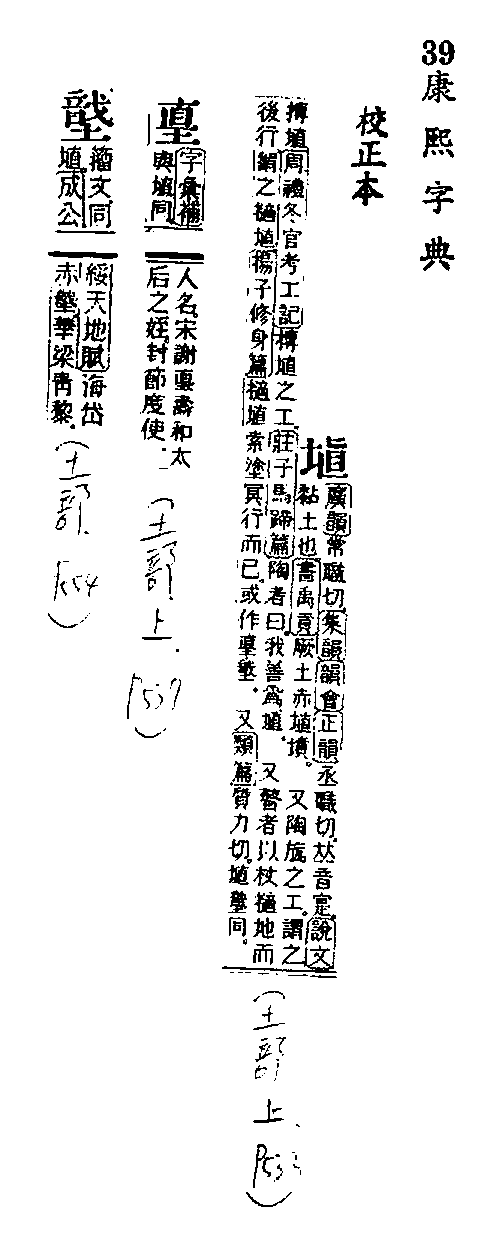 39
康熙字典
校正本
埴
廣韻常職切集韻韻會正韻丞職切𠀤音寔說文
黏土也書禹貢厥土赤埴墳。又陶旊之工謂之
摶埴周禮冬官考工記摶埴之工莊子馬蹄篇陶者曰我善爲埴。又瞽者以杖擿地而
後行謂之擿埴揚子修身篇擿埴索塗冥行而已或作𡍲𡑌。又類篇質力切埴𡑌同。
(土部上、P53
字彙補
與埴同
人名宋謝𡍲壽和太
后之姪封節度使.
(土部上、P537)
籀文同
埴成公
綏天地賦海岱
赤𡑌華梁靑黎.
(土部、P554)